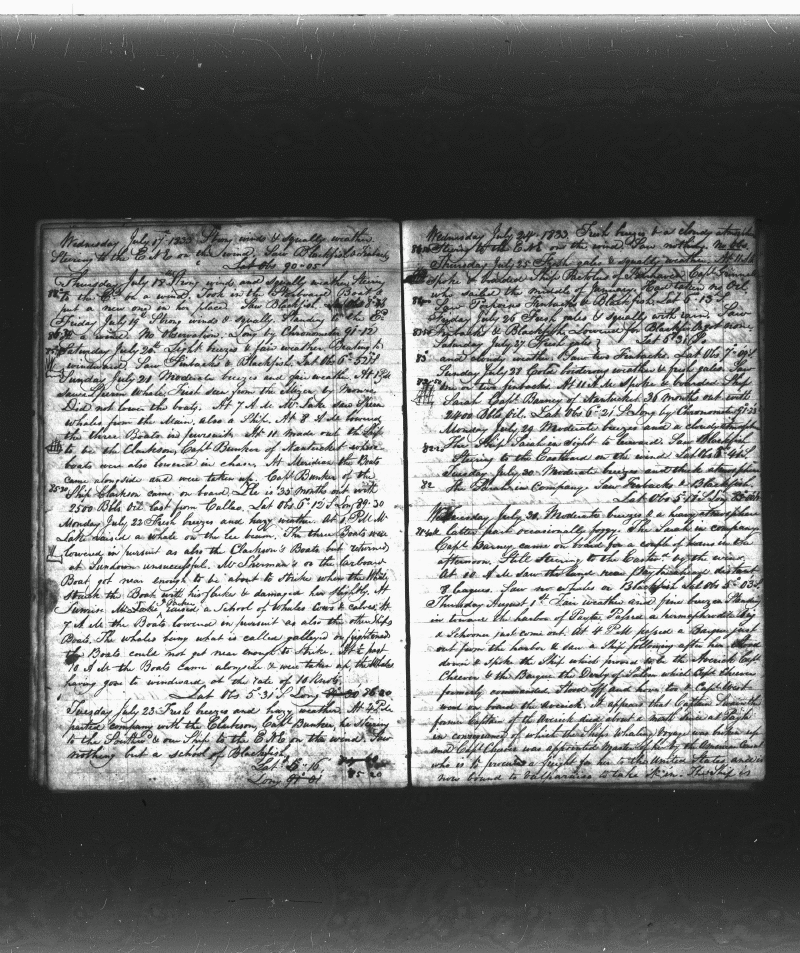 Wednesday July 17th 1833 Strong winds & squally weather
Steering to the E.N.E on the wind. Saw Blackfish & Finbacks
Lat Obs 90-05
Thursday July 18th Strong wind and squally weather Steering
to the Ed by a wind. Took in the Starboard Boat &
put a new one in her place. Saw Blackfish
Friday July 19 Strong winds & squally. Standing to the Ed
by a wind. No observation. Long by Chronometer 91-12
Saturday July 20th Light breezes & fair weather Beating to
windward. Saw Finbacks & Blackfish. Lat Obs 6-52 S
Sunday July 21 Moderate breezes and fair weather. At 1 PM
saw a Sperm Whale. First seen from the Mizen by
Did not lower the boats. At 7 A.M. Mr Lake saw Sperm
whales from the Main, also a Ship. At 8 A.M lowered
the three Boats in pursuit. At 11 made out the Ship
to be the Clarkson, Capt Bunker of Nantucket whose
boats were also lowered in chase. At Meridian the Boats
came alongside and were taken up. Capt Bunker of the
Ship Clarkson came on board. He is 35 months out with
2500 Bbls Oil last from Callao. Lat Obs 6-12 S Long 89-30
Monday July 22 Fresh breezes and hazy weather. At 1 PM Mr
Lake raised a whale on the lee beam. The three Boats were
lowered in pursuit as also the Clarkson's Boats but returned
at Sundown unsuccessful. Mr Sherman on the Larboard
Boat got near enough to be about to strike when the Whale
struck the Boat with his flukes & damaged her slightly. At
Sunrise Mr Lake raised a School of Whales Cows & calves. At
7 A.M the Boats lowered in pursuit as also the other Ships
Boats. The whales being what is called gallied or frightened
the Boats could not get near enough to strike. At ½ past
10 A.M the Boats came alongside & were taken up, the Whales
having gone to windward at the rate of 10 knots
Lat Obs 5-31 S Long
Tuesday July 23 Fresh breezes and hazy weather. At 4 PM
parted company with the Clarkson, Capt Bunker, he steering
to the Southd & our Ship to the E.N.E on the wind. Saw
nothing but a school of Blackfish
Latd 5-16
Long
85 20
Wednesday July 24-1833 Fresh breezes & a cloudy atmosphere
Steering to the E.N.E on the wind. Saw nothing. No Obs.
Thursday July 25 Fresh gales & squally weather. At 11 A.M
Spoke & boarded Ship Parthian of Nantucket Capt
who sailed the middle of January. Had taken no Oil
Saw Finbacks & Blackfish. Lat Obs 6-13 S
Friday July 26 Fresh gales & squally with rain. Saw
Finbacks & Blackfish. Lowered for Blackfish got none
Saturday July 27 Fresh gales Lat 6-31 S
and cloudy weather. Saw two Finbacks. Lat Obs
Sunday July 28 Cold boisterous weather & fresh gales. Saw
one or two finbacks. At 11 A.M Spoke & boarded Ship
Sarah Capt Barney of Nantucket 26 months out with
2400 Bbls Oil. Lat Obs 6-21 S Long by Chronometer
Monday July 29 Moderate breezes and a cloudy atmosphere
The Ship Sarah in sight to leeward. Saw Blackfish
Steering to the Eastward on the wind. Lat Obs
Tuesday July 30 Moderate breezes and thick atmosphere
The Sarah in Company. Saw Finbacks & Blackfish.
Lat Obs
Wednesday July 30. Moderate breezes & a hazy atmosphere
latter part occasionally foggy. The Sarah in company
Capt Barney came on board for a couple of hours in the
afternoon. Still steering to the Eastwd by the wind.
At 10 A.M saw the land near bearing distant
8 leagues. Saw no whales or Blackfish. Lat Obs 5° 03 S
Thursday August 1st Fair weather and fine breezes. Standing
in toward the harbor of Payta. Passed a hermaphrodite Brig
& Schooner just come out. At 4 P.M passed a Barque
out from the harbor & saw a Ship following after her. Stood
down & spoke the Ship which proved to be the Averick Capt
Cheever & the Barque the Derby of Salem which Capt Cheever
formerly commanded. Stood off and hove too & Capt West
went on board the Averick. It appears that Captain Swain the
former Captain of the Averick died about a month since at Payta
in consequence of which the Ships Whaling Voyage was broken up
and Capt Cheever was appointed Master of her by the American Consul
who is to procure a freight for her to the United States and is
now bound to Valparaiso to take it in. The Ship is